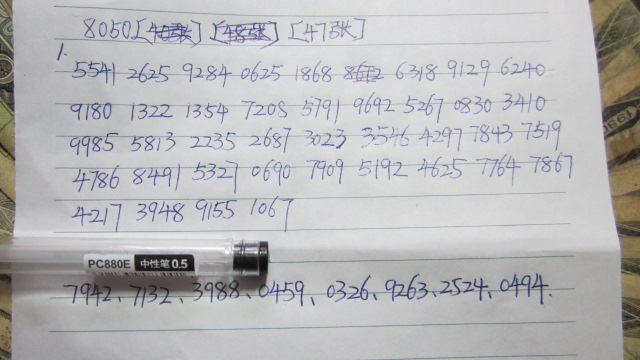 8050 [47张]
1.
5541 2625 9284 0625 1868 6318 9129 6240
9180 1322 1354 7208 5791 9692 5267 0830 3410
9985 5813 2235 2687 3023 3546 4297 7843 7519
4786 8491 5327 0690 7909 5192 4625 7764 7867
4217 3948 9155 1067
PC880E 中性笔 0.5
7942、7132、3988、0459、0326、9263、2524、0494.